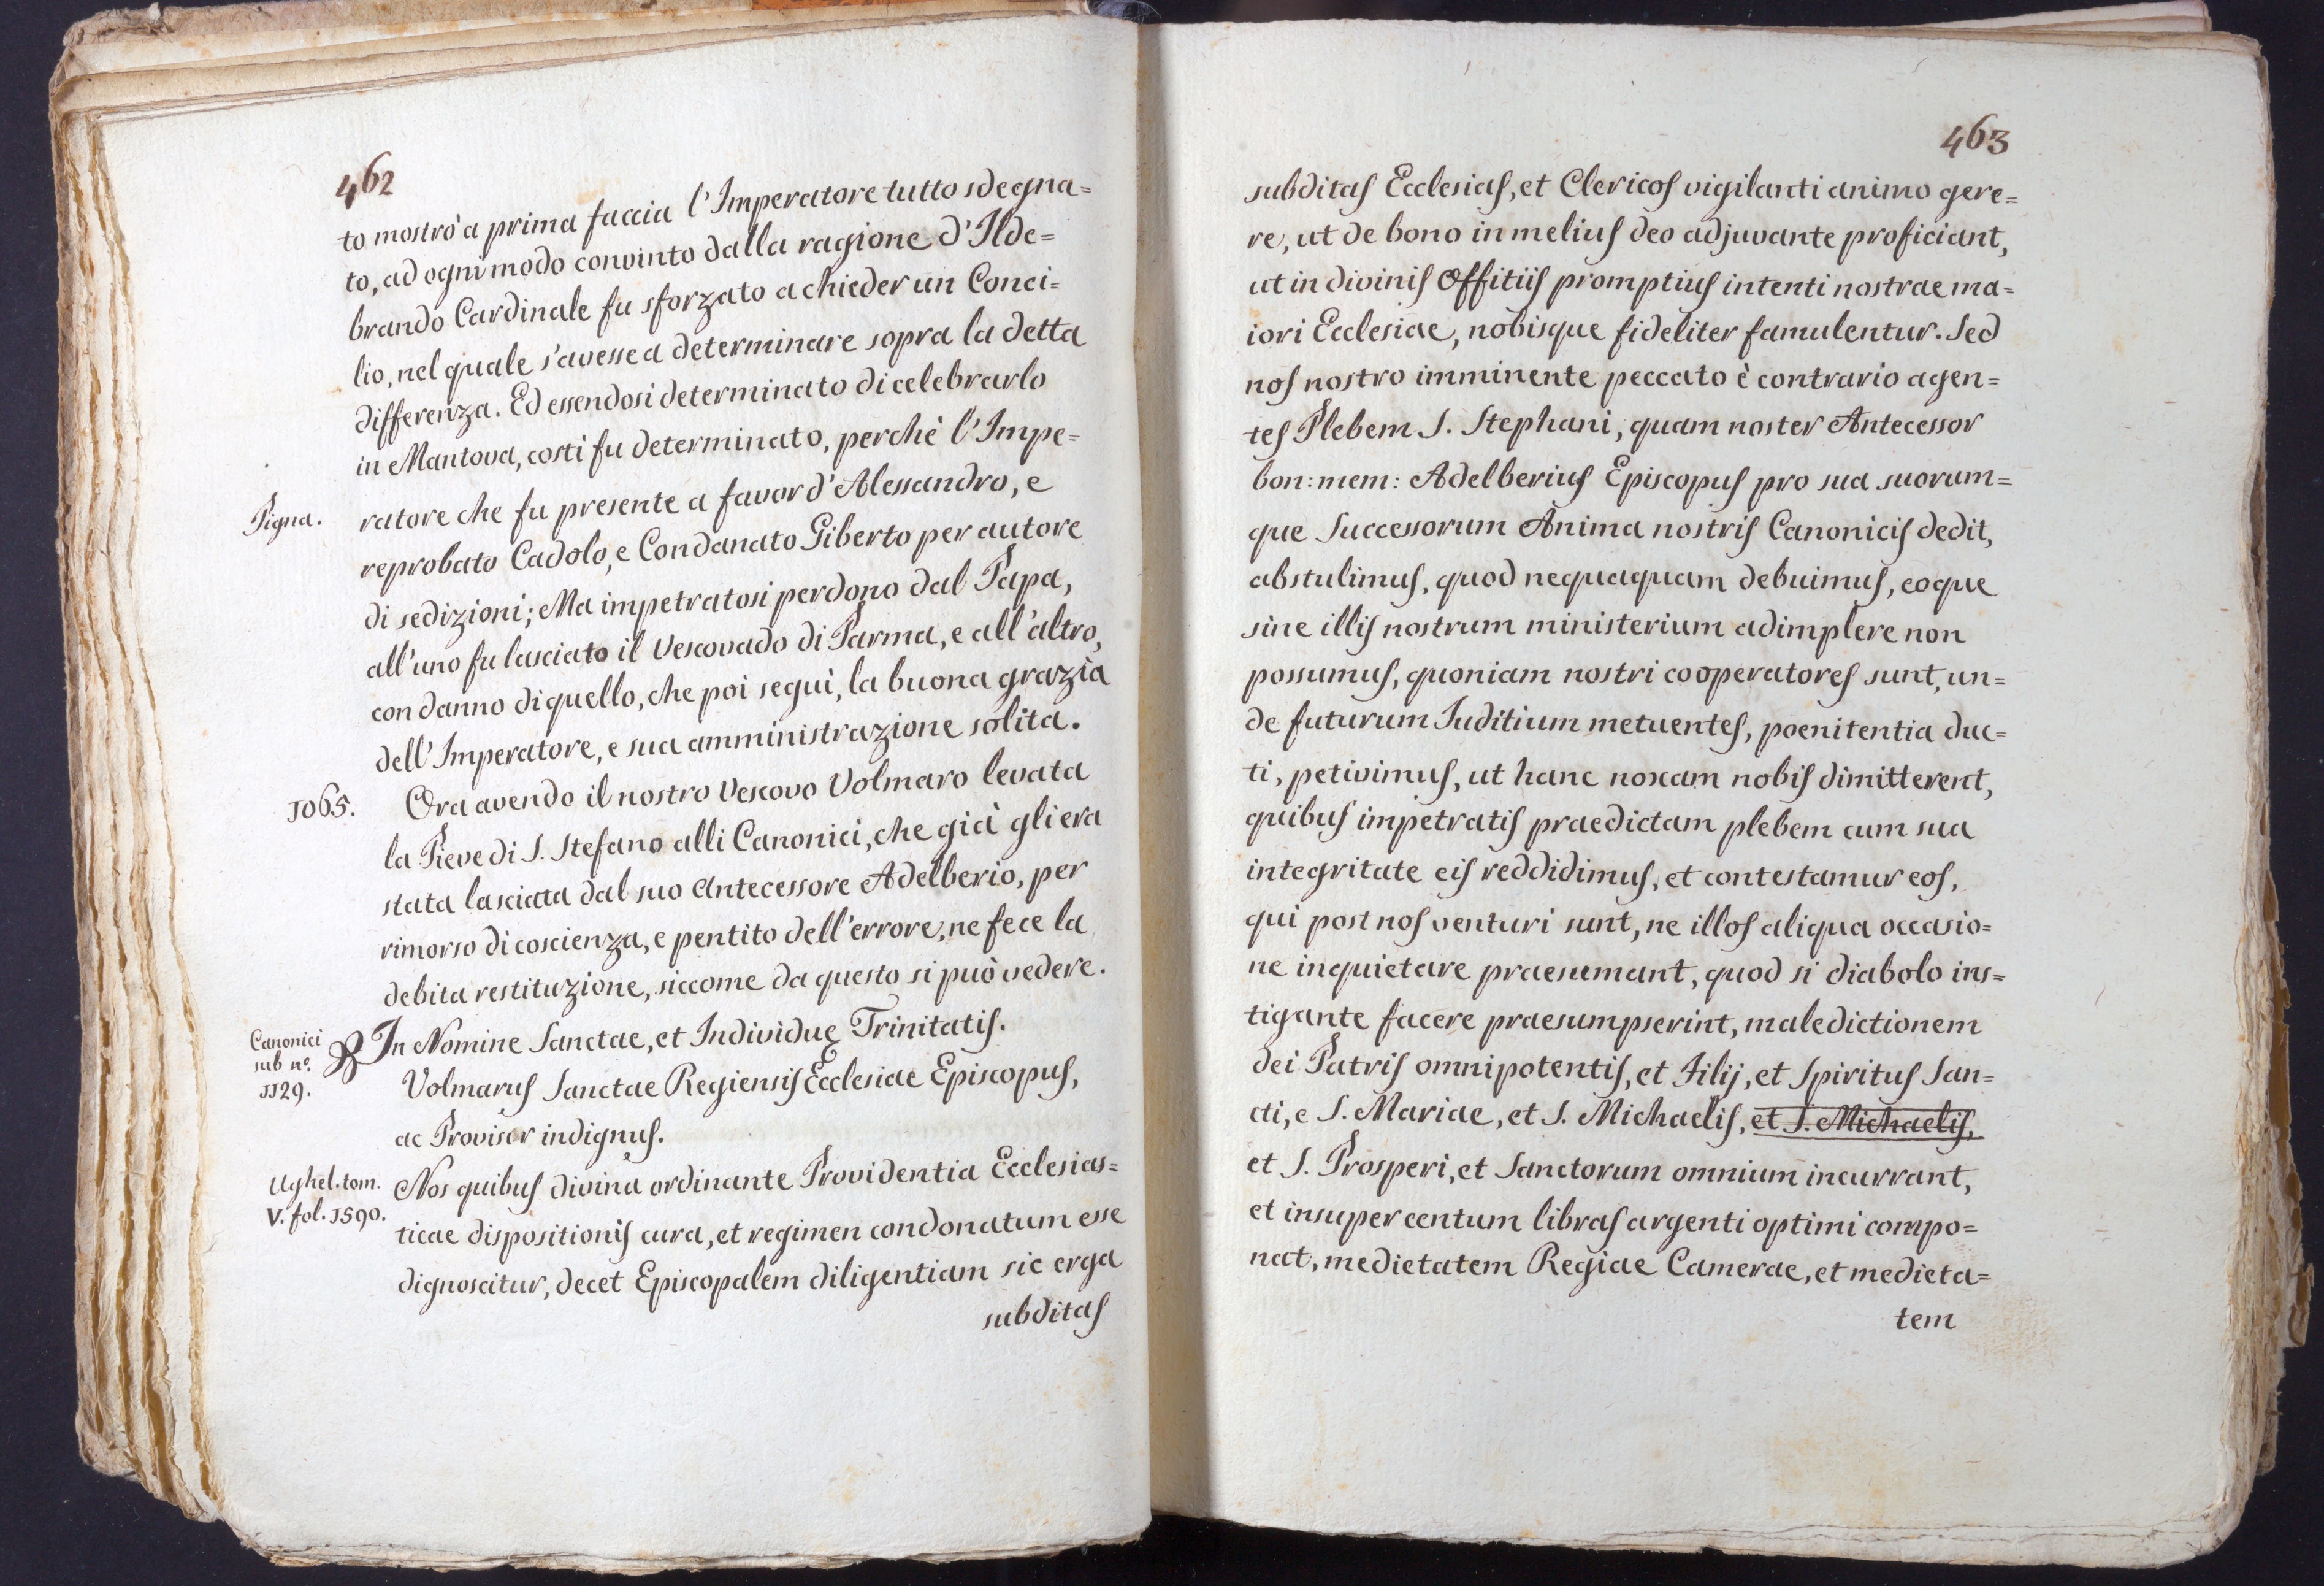 462
to mostrò a prima faccia l'Imperatore tutto sdegna=
to, ad ogni modo convinto dalla ragione d'Ilde=
brando Cardinale fu sforzato a chieder un Conci=
lio, nel quale s'avesse a determinare sopra la detta
differenza. Ed essendosi determinato di celebrarlo
in Mantova, costì fu determinato, perchè l'Impe=
Pigna.
ratore che fu presente a favor d'Alessandro, e
reprobato Cadolo, e Condanato Giberto per autore
di sedizioni; Ma impetratosi perdono dal Papa,
all'uno fu lasciato il Vescovado di Parma, e all'altro,
con danno di quello, che poi seguì, la buona grazia
dell'Imperatore, e sua amministrazione solita.
1065.
Ora avendo il nostro Vescovo Volmaro levata
la Pieve di S. Stefano alli Canonici, che già gli era
stata lasciata dal suo Antecessore Adelberio, per
rimorso di coscienza, e pentito dell'errore, ne fece la
debita restituzione, siccome da questo si può vedere.
Canonici
sub nº.
1129.
In Nomine Sanctae, et Individuę Trinitatis.
Volmarus Sanctae Regiensis Ecclesiae Episcopus,
ac Provisor indignus.
Ughel. tom.
V. fol. 1590.
Nos quibus divina ordinante Providentia Ecclesias=
ticae dispositionis cura, et regimen condonatum esse
dignoscitur, decet Episcopalem diligentiam sic erga
subditas
463
subditas Ecclesias, et Clericos vigilanti animo gere=
re, ut de bono in melius deo adjuvante proficiant,
ut in divinis Offitiis promptius intenti nostrae ma=
iori Ecclesiae, nobisque fideliter famulentur. Sed
nos nostro imminente peccato è contrario agen=
tes Plebem S. Stephani, quam noster Antecessor
bon: mem: Adelberius Episcopus pro sua suorum=
que Successorum Anima nostris Canonicis dedit,
abstulimus, quod nequaquam debuimus, eoque
sine illis nostrum ministerium adimplere non
possumus, quoniam nostri cooperatores sunt, un=
de futurum Iuditium metuentes, poenitentia duc=
ti, petivimus, ut hanc noxam nobis dimitterent,
quibus impetratis praedictam plebem cum sua
integritate eis reddidimus, et contestamur eos,
qui post nos venturi sunt, ne illos aliqua occasio=
ne inquietare praesumant, quod si diabolo ins=
tigante facere praesumpserint, maledictionem
dei Patris omnipotentis, et Filij, et Spiritus San=
cti, e S. Mariae, et S. Michaelis, et S. Michaelis,
et S. Prosperi, et Sanctorum omnium incurrant,
et insuper centum libras argenti optimi compo=
nat, medietatem Regiae Camerae, et medieta=
tem